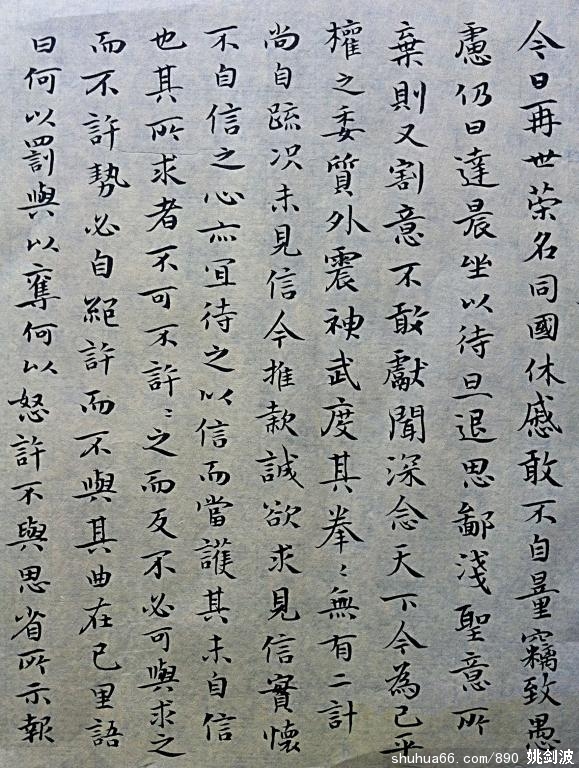 今日再世榮名同國休慼敢不自量竊致愚
慮仍日達晨坐以待旦退思鄙淺聖意所
棄則又割意不敢獻聞深念天下今為已平
權之委質外震神武度其拳〻無有二計
尚自疏况未見信今推款誠欲求見信實懷
不自信之心亦宜待之以信而當護其未自信
也其所求者不可不許〻之而反不必可與求之
而不許勢必自絕許而不與其曲在己里語
曰何以罰與以奪何以怒許不與思省所示報
shuhua66.com/890 姚剑波